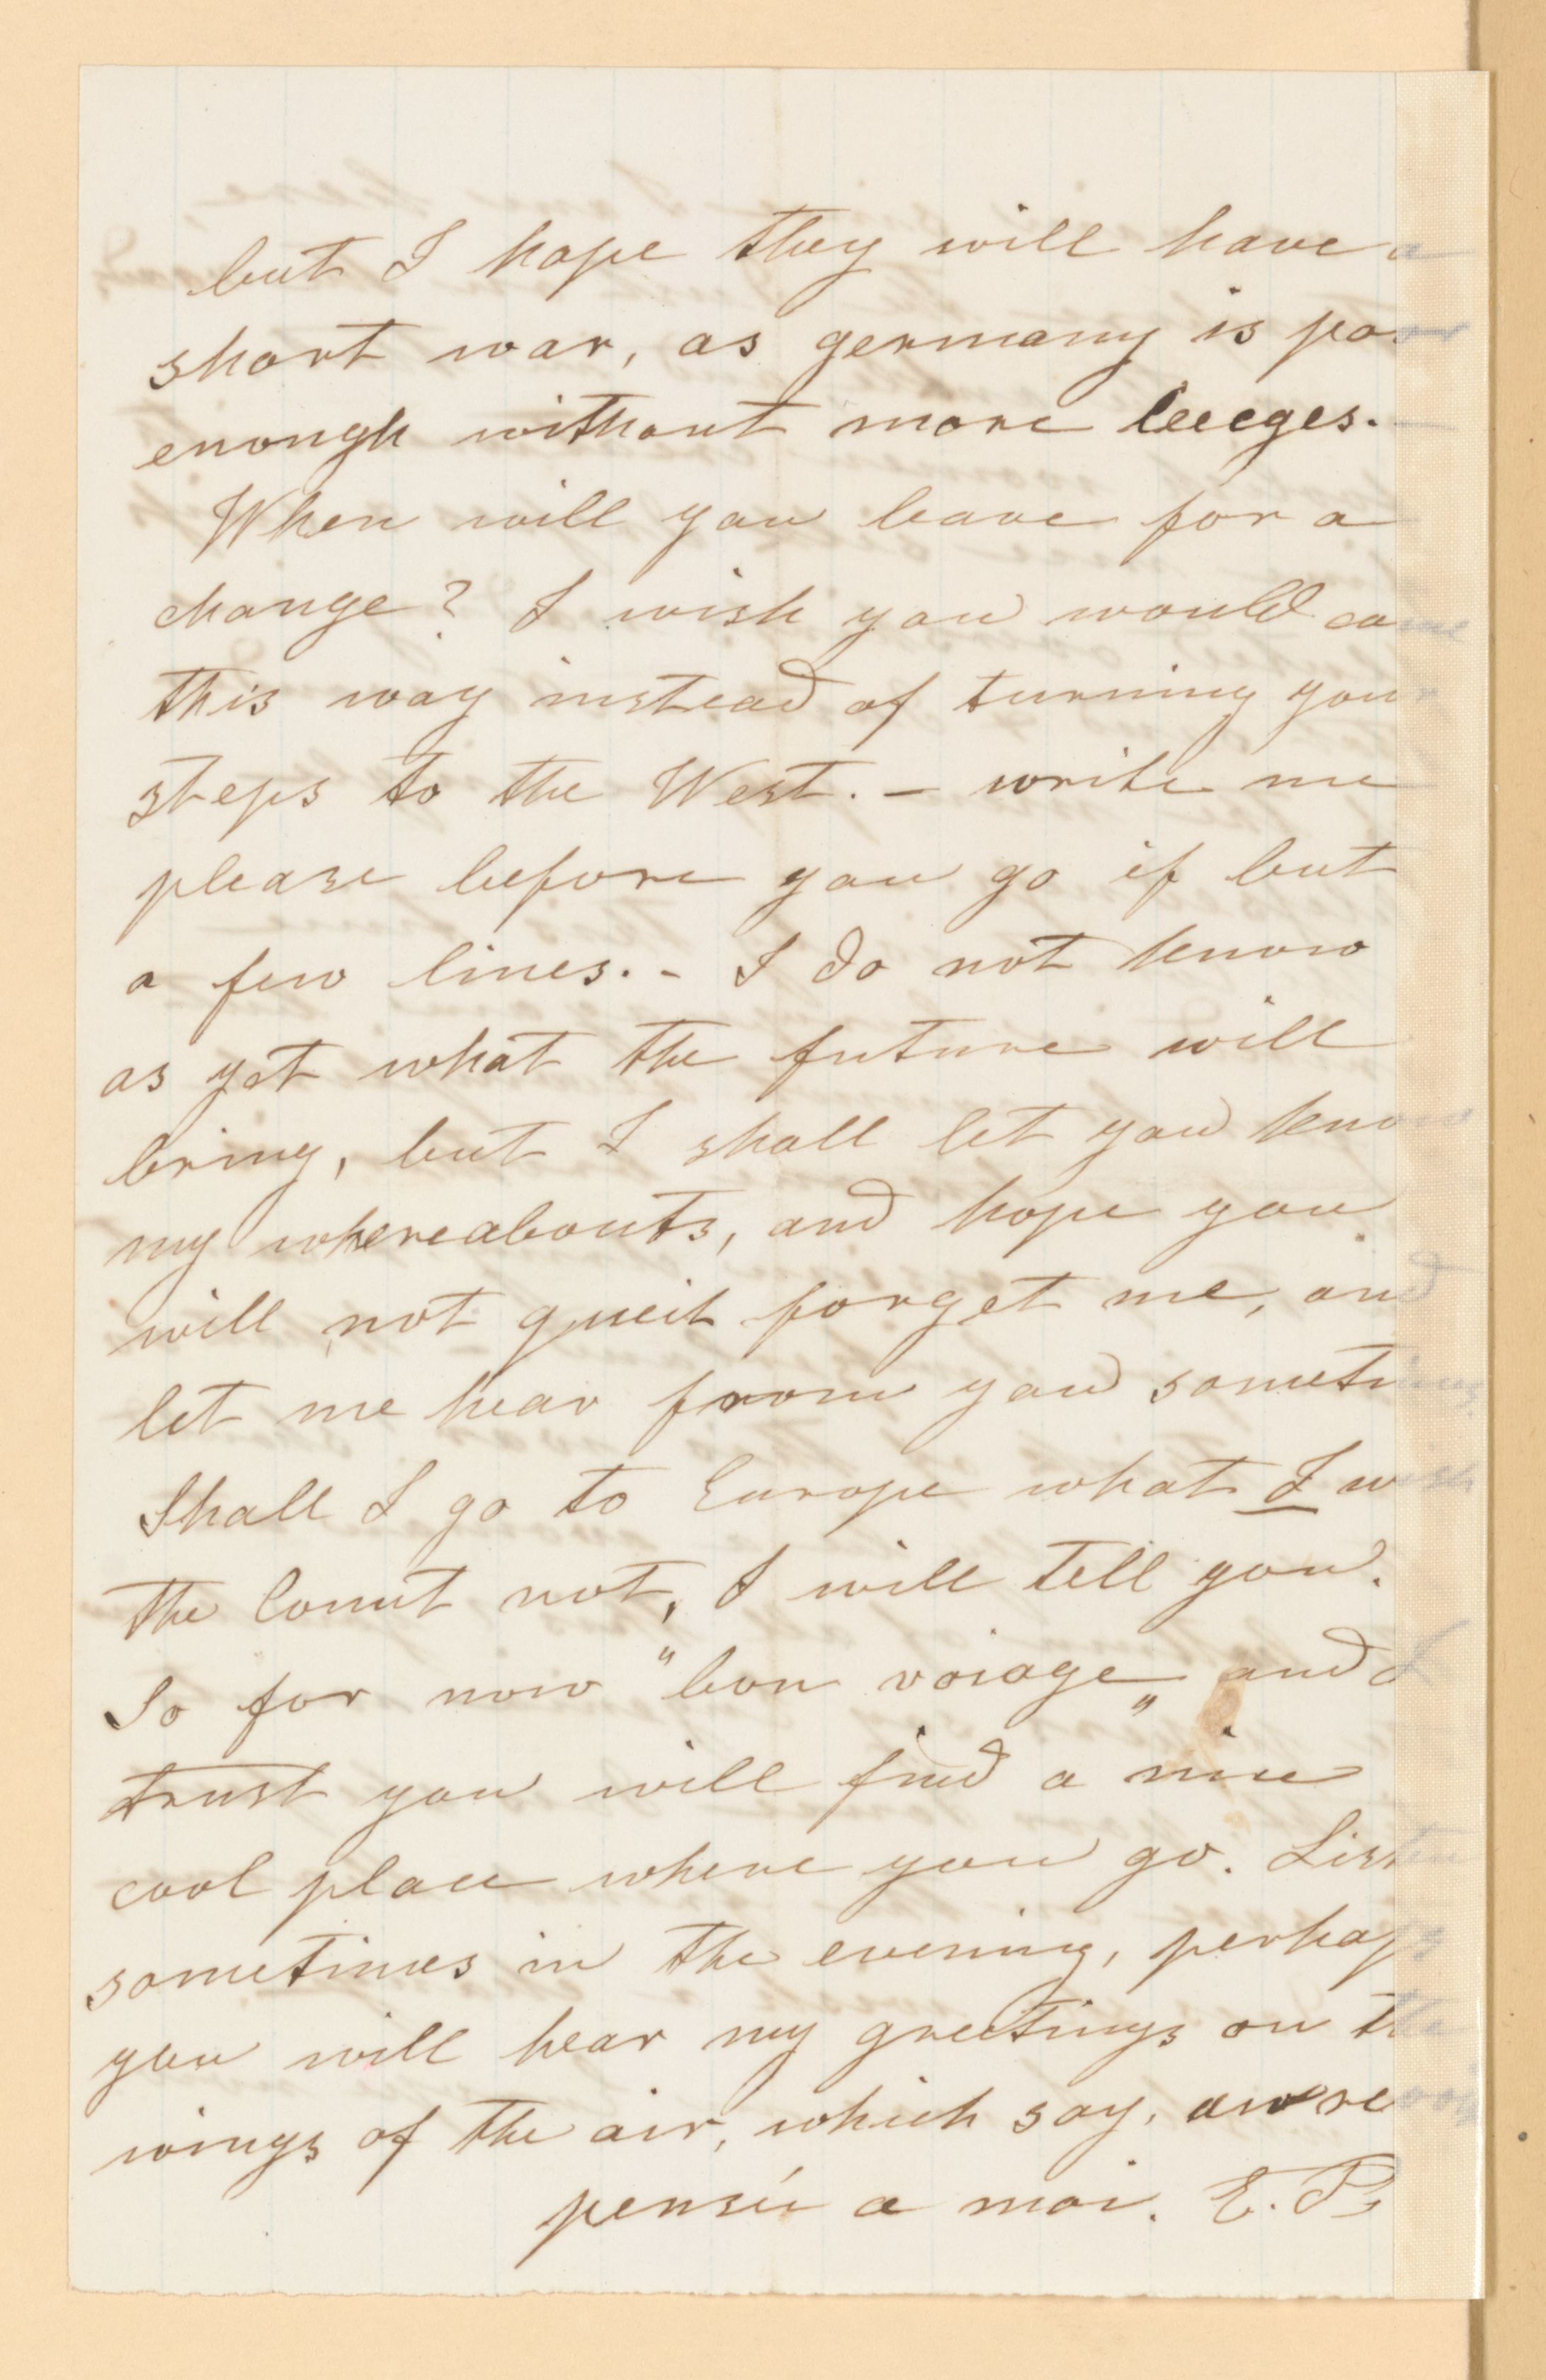 but I hope they will have a
short war, as germany is poor
enough without more leeches.
When will you leave for a
change? I wish you would come
this way instead of turning your
steps to the West. – write me
please before you go if but
a few lines. – I do not know
as yet what the future will
bring, but I shall let you know
my whereabouts, and hope you
will not queit forget me, and
let me hear from you sometimes.
Shall I go to Europe what I wish
the Count not, I will tell you.
So for now "bon voiage„ and I
trust you will find a nice
cool place where you go. Listen
sometimes in the evening, perhaps
you will hear my greetings on the
wings of the air, which say, au revoir
pensée a moi. E. P.